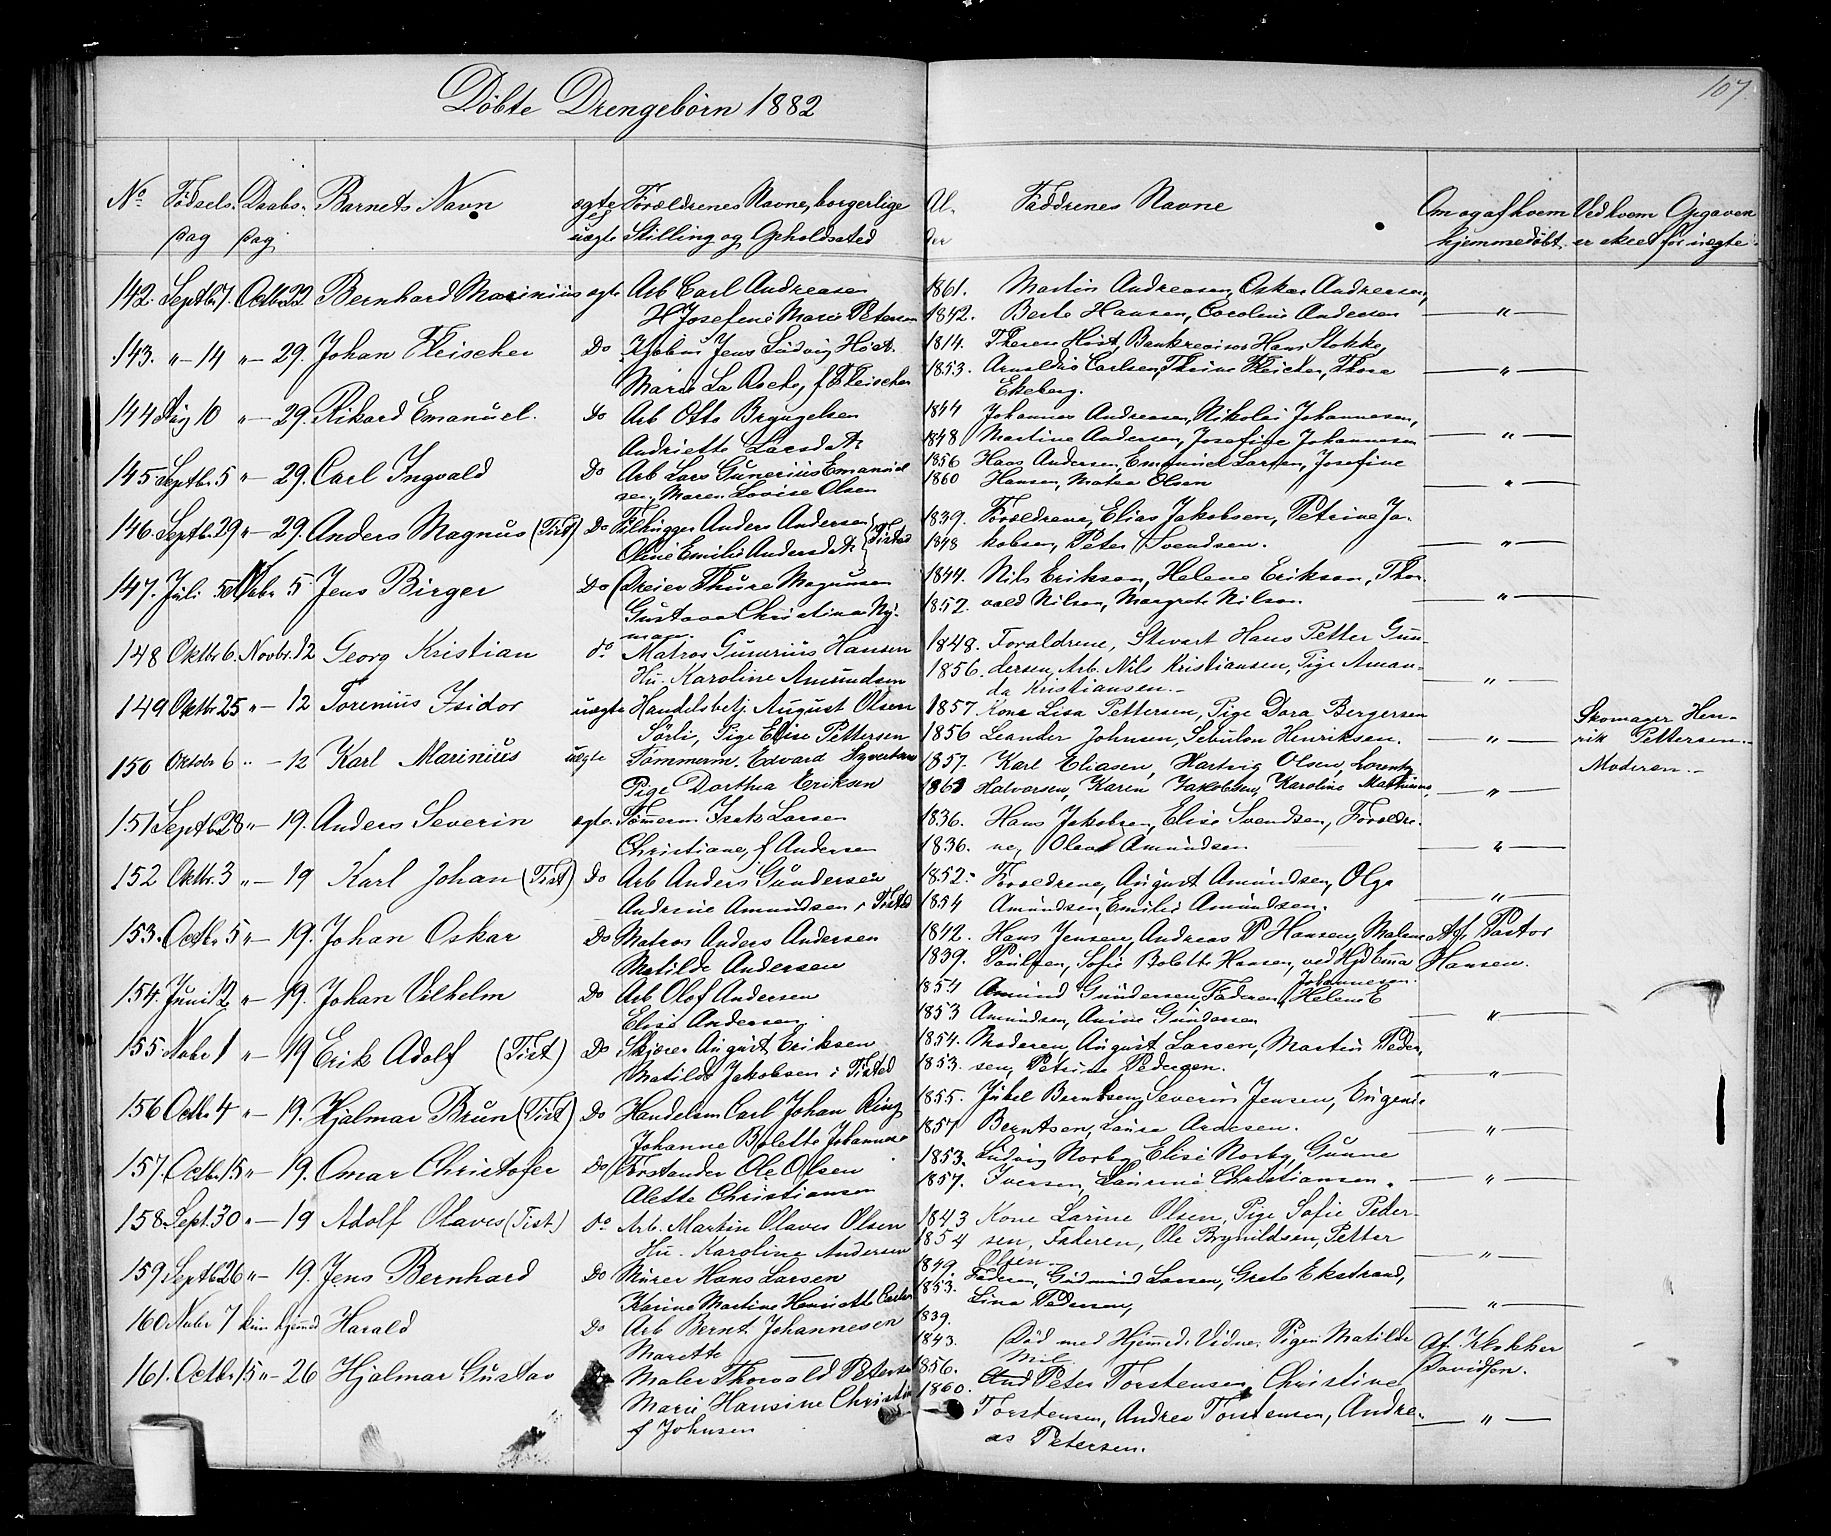 107.
Döbte Drengebörn 1882
No Födsels- Daabs- Barnets Navn ægte Forældrenes Navne, borgerlige Al- Faddrenes Navne Om og af hvem Ved hvem Opgaven
dag dag ell uægte Stilling og Opholdssted der hjemmedöbt er skeet for uægte
142. Septbr 7. Octbr 22 Bernhard Marinius ægte Arb Carl Andreasen 1861. Martin Andreasen, Oskar Andreasen,
H Josefine Marie Petersen 1842. Berte Hansen, Caroline Andersen — " —
143. " 14 " — 29. Johan Fleischer Do Kjöbm Jens Ludvig Höst. 1814. Therese Höst, Bankrevisor Hans Stokke,
Marie La Roche, f Fleischer 1853. Carlsen, Fleischer, Thora — " —
Ekeberg.
144 Aug 10 " — 29. Rikard Emanuel. Do Arb Otto Bryngelsen 1844 Johannes Andreasen, Nikolai Johannesen,
Andriette Larsdatr 1848 Martine Andersen, Josefine Johannesen — " —
145 Septbr 5 " — 29. Carl Ingvald Do Arb Lars Gunerius Emanuel 1856 Hans Andersen, Emanuel Larsen, Josefine
sen, Maren Lovise Olsen 1860 Hansen, Olsen — " —
146. Septbr 29 " — 29. Anders Magnus (Tist) Do Anders Andersen 1839. Forældrene, Elias Jakobsen, Petrine Ja-
Oline Emilie Andersdatr Tisted 1848 kobsen, Peter Svendsen. — " —
147. Juli 5 Novbr 5 Jens Birger Do Dreier Thure Magnusen 1844. Nils Erikson, Helene Erikson, Thor-
Gustava Christina Ny- 1852. vald Nilson, Margrete Nilson. — " —
man.
148 Oktbr 6. Novbr. 12 Georg Kristian do Matros Gunerius Hansen 1848. Foraldrene, Stevart Hans Petter Gun-
Hu. Karoline Amundsen 1856. dersen, Arb. Nils Kristiansen, Pige Aman-
da Kristiansen.— — " —
149 Oktbr 25 " — 12 Torenius Isidor uægte Handelsbetj. August Olsen 1857 Kone Lisa Pettersen, Pige Dora Bergersen Skomager Hen-
Sörli, Pige Elise Pettersen 1856 Leander Johnsen, Sebulon Henriksen. — " — rik Pettersen.—
150 Oktobr 6 " — 12 Karl Marinius uægte Tömmerm. Edvard Syvertsen 1857. Karl Eliasen, Hartvig Olsen, Lorentz Moderen.—
Pige Dorthea Eriksen Halvorsen, Karen Jakobsen, Karoline — " —
151 Septbr 28 " — 19. Anders Severin ægte. Tömmerm Larsen 1836. Hans Jakobsen, Elise Svendsen, Foreldre-
Christiane, f Andersen 1836. ne, Amundsen — " —
152 Oktbr. 3 " — 19 Karl Johan (Tist) Do Arb Anders Gundersen 1852. Forældrene, August Amundsen, Olga
Andrine Amundsen i Tisted 1854 Amundsen, Emilie Amundsen. — " —
153. Octbr 5 " — 19. Johan Oskar Do Matros Anders Andersen 1842. Hans Jensen, Andreas P Hansen, Malene Af Pastor
Matilde Andersen 1839. Paulsen, Sofie Bolette Hansen, ved Hjd Hansen.
Johannesen.
154. Juni 12 " — 19. Johan Vilhelm Do Arb Olof Andersen 1854 Amund Gundersen, Faderen, Helene E
Elise Andersen 1853 Amundsen, Anine Gundersen — " —
155 Novbr 1 " — 19 Erik Adolf (Tist) Do August Eriksen 1854. Moderen, August Larsen, Martin Peder-
Matilde Jakobsen i Tisted 1853. sen, Petrine Pedersen. — " —
156 Octbr 4 " — 19. Hjalmar Brun (Tist) Do Handelsm Carl Johan Ring 1855. Berntsen, Severin Jensen, Eugenie
Johanne Bolette Johannese 1857 Berntsen, Laura — " —
157. Octbr 15 " — 19. Omar Christofer Do Forstander Ole Olsen 1853. Ludvig Norby, Elise Norby, Gunne
Alette Christiansen 1857. Iversen, Christiansen. — " —
158. Sept. 30 " — 19 Adolf Olaves (Tist) do Arb. Martin Olaves Olsen 1843 Kone Larine Olsen, Pige Sofie Peder-
Hu. Karoline Andersen 1854 sen, Faderen, Ole Brynildsen, Petter
Olsen — " —
159. Septbr 26 " — 19. Jens Bernhard Do Murer Hans Larsen 1849. Faderen, Gudmund Larsen, Grete Ekstrand,
Karine Martine Henriette Carlsen 1853. Lina Pedersen, — " —
160 Novbr 7 kun hjemmed Harald Do Arb Bernt Johannesen 1839. (Död med Hjemmed. Vidne. Pigen Matilde Af Klokker
Marette 1843. Davidsen.
161. Octbr 15 " — 26 Hjalmar Gustav Maler Thorvald Petersen 1856. Peter Torstensen, Christine
Marie Hansine Christine 1860. Torstensen, Andrea Torstensen, Andre-
f Johnsen as Petersen. — " —